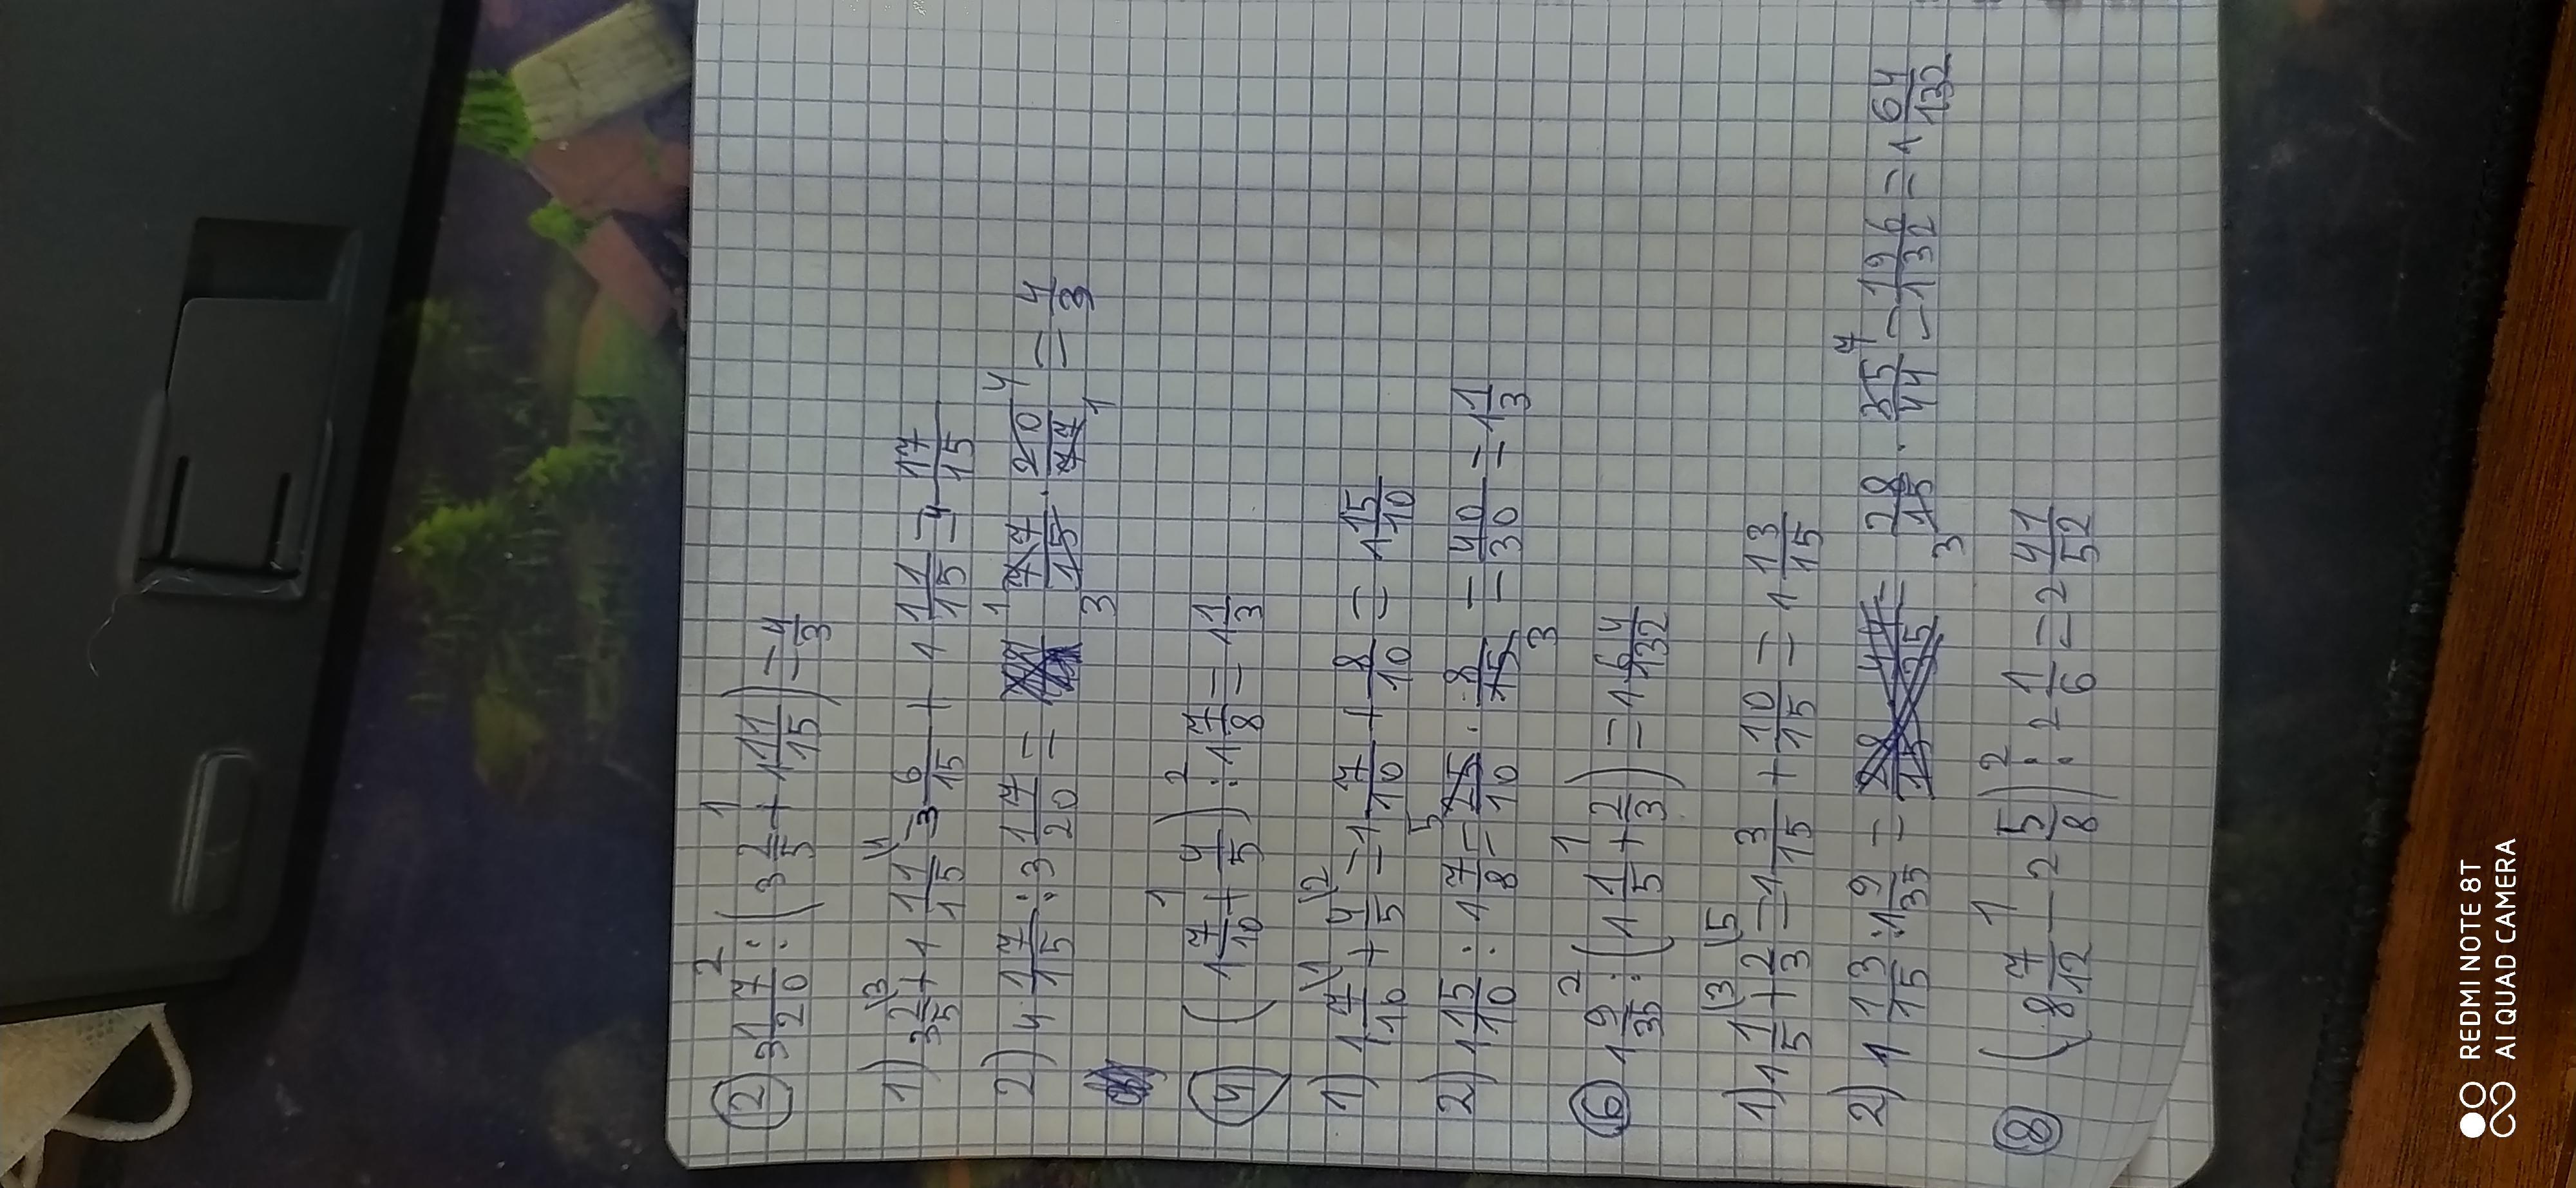 ② 3 17/20 : (3 2/5 + 1 11/15) = 4/3
1) 3 2/5 + 1 11/15 = 3 6/15 + 1 11/15 = 4 17/15
2) 4 17/15 : 3 17/20 = 77/15 · 20/77 = 4/3
④ (1 7/10 + 4/5) : 1 7/8 = 1 1/3
1) 1 7/10 + 4/5 = 1 7/10 + 8/10 = 1 15/10
2) 1 15/10 : 1 7/8 = 25/10 · 8/15 = 40/30 = 1 1/3
⑥ 1 9/35 : (1 1/5 + 2/3) = 1 64/132
1) 1 1/5 + 2/3 = 1 3/15 + 10/15 = 1 13/15
2) 1 13/15 : 1 9/35 = 28/15 · 35/44 = 196/132 = 1 64/132
⑧ (8 7/12 - 2 5/8) : 2 1/6 = 2 41/52
REDMI NOTE 8T
AI QUAD CAMERA